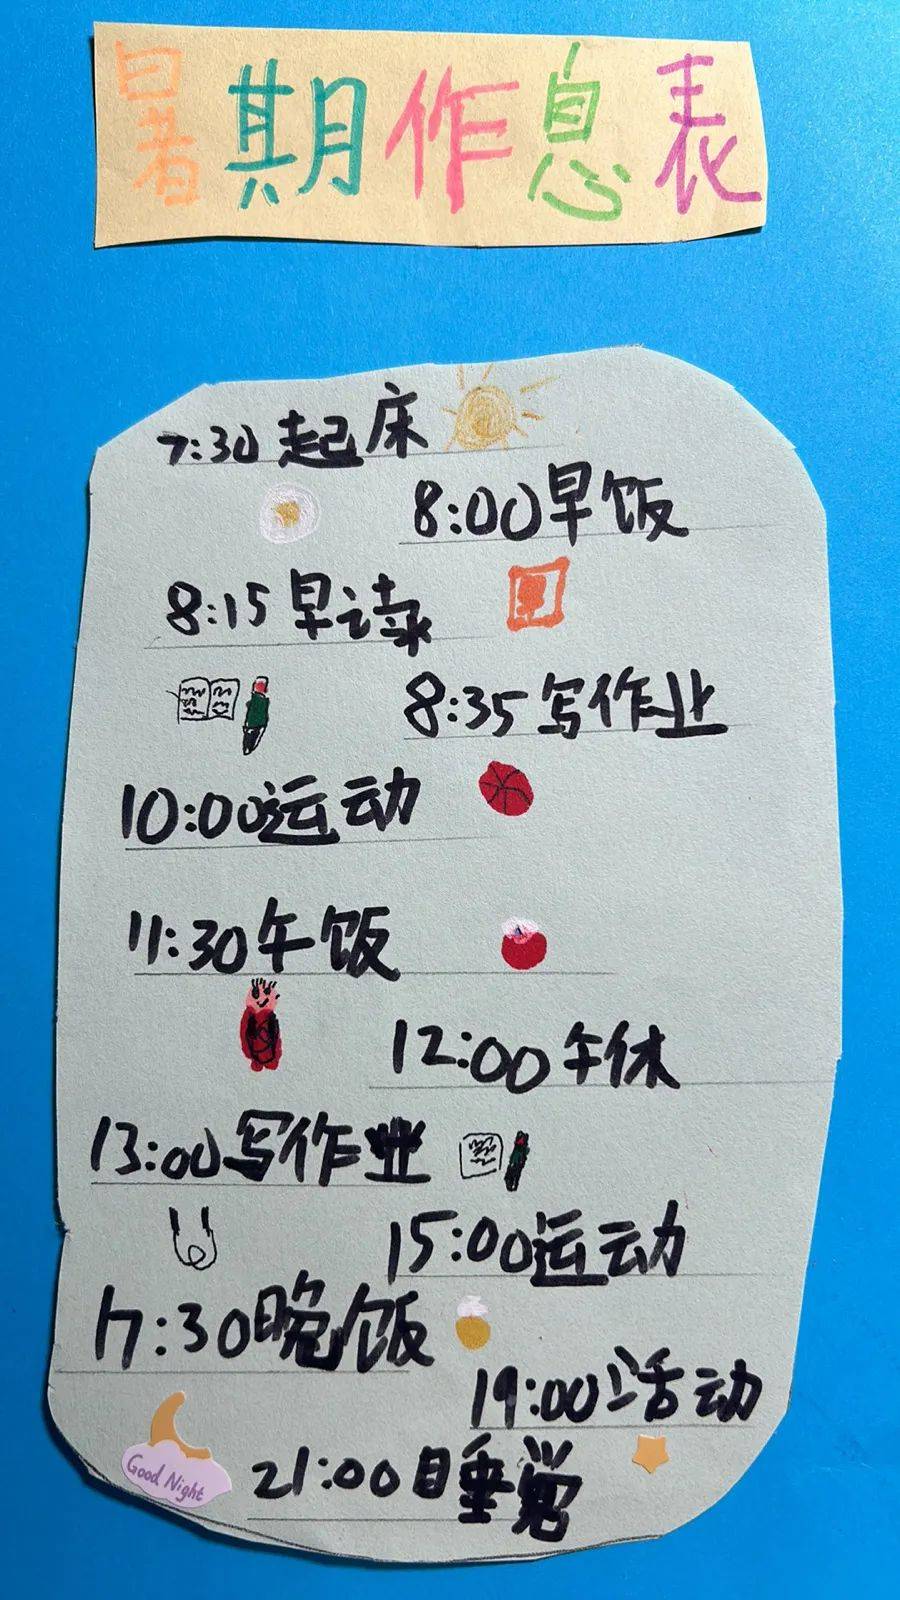 暑期作息表
7:30起床
8:00早饭
8:15早读
8:35写作业
10:00运动
11:30午饭
12:00午休
13:00写作业
15:00运动
17:30晚饭
19:00活动
Good Night
21:00睡觉